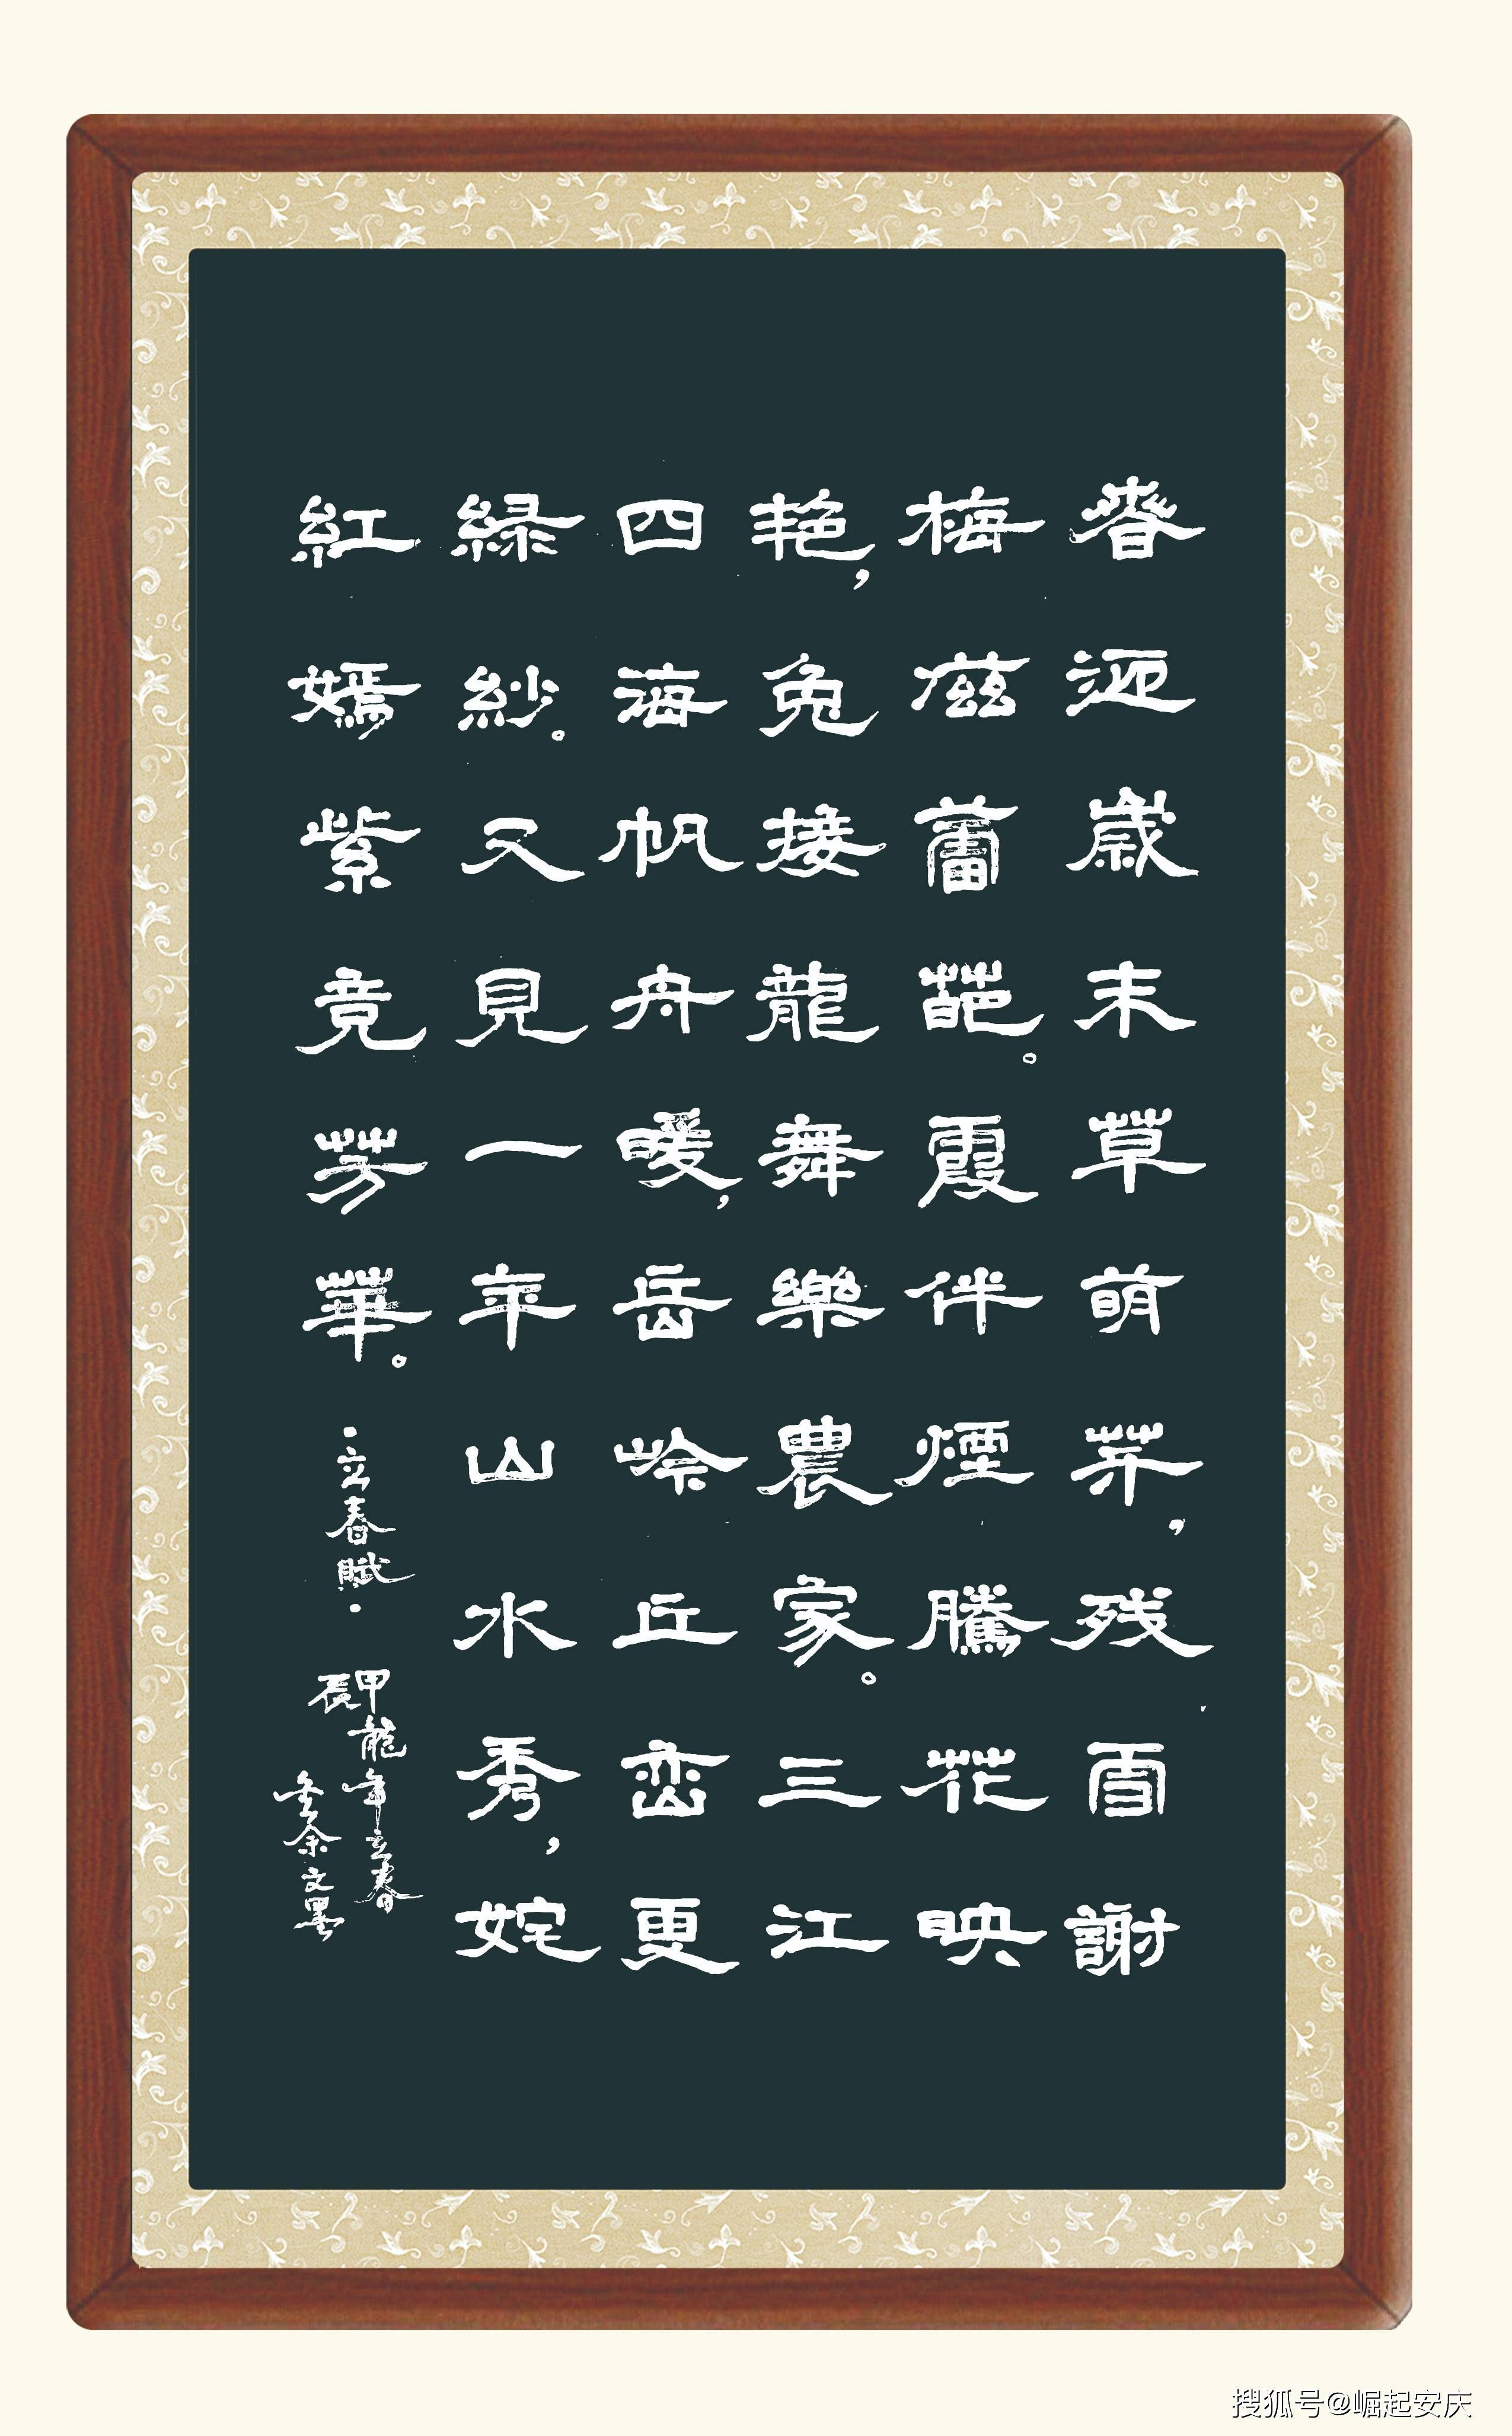 春迎歲末草萌芽，残雪謝
梅滋蕾葩。霞伴煙騰花映
艳，兔接龍舞樂農家。三江
四海帆舟暖，岳岭丘峦更
緑紗。又見一年山水秀，姹
紅嫣紫竟芳華。
·立春賦·
甲辰龍年立春
余文墨
搜狐号@崛起安庆